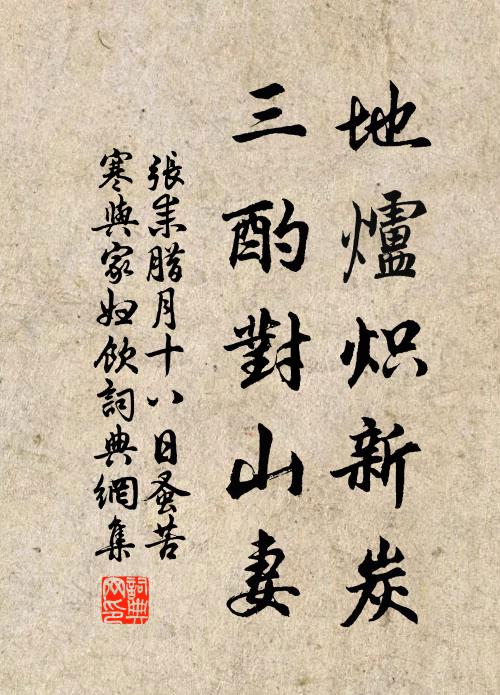 地爐炽新炭
三酌對山妻
張耒腊月十八日蚤苦
寒與家妇饮詞典網集
詞典
网印